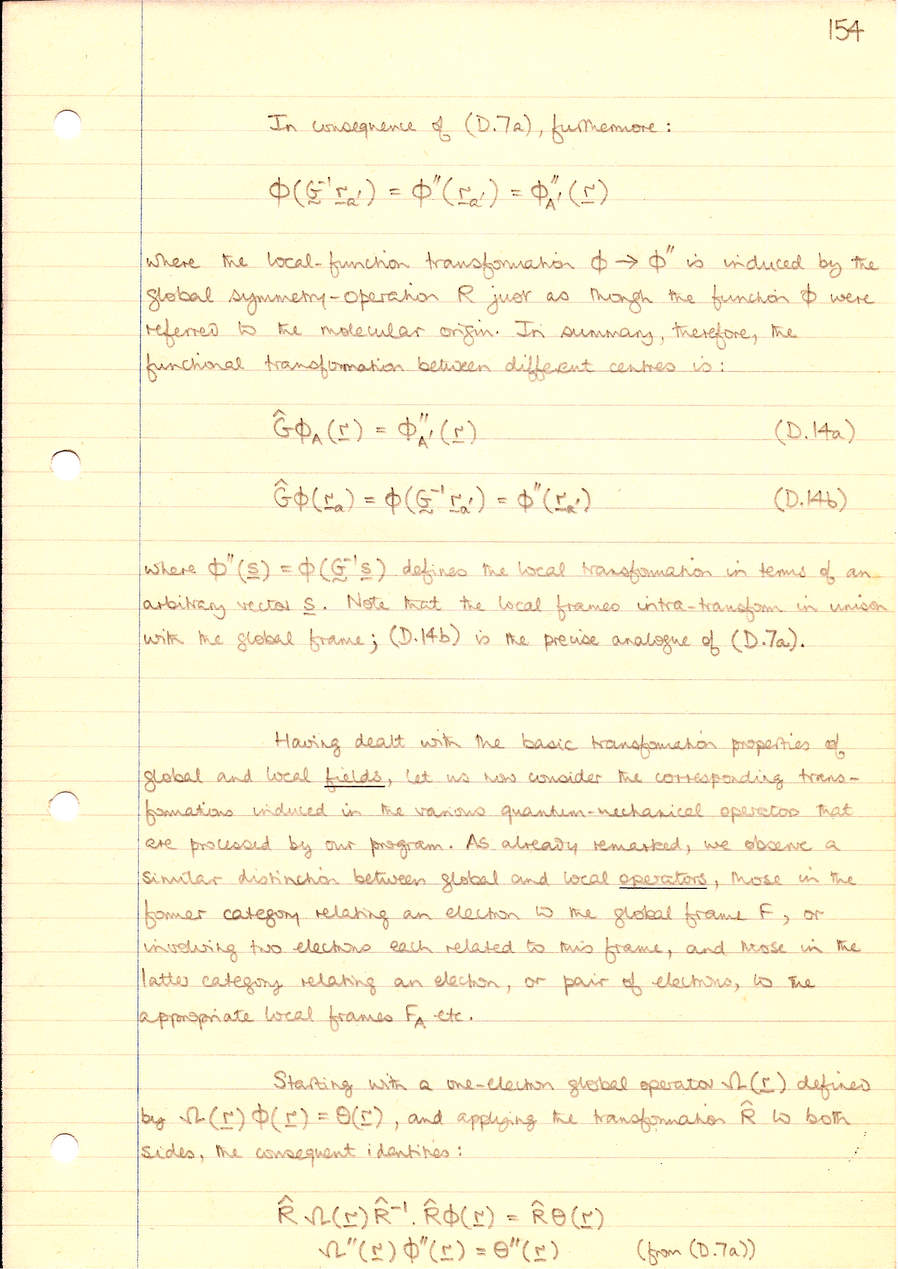 154
In consequence of (D.7a), furthermore:
ϕ(G̰⁻¹r̲ₐ′) = ϕ″(r̲ₐ′) = ϕ″_A′(r̲)
where the local-function transformation ϕ → ϕ″ is induced by the
global symmetry-operation R just as though the function ϕ were
referred to the molecular origin. In summary, therefore, the
functional transformation between different centres is:
Ĝϕ_A(r̲) = ϕ″_A′(r̲) (D.14a)
Ĝϕ(r̲ₐ) = ϕ(G̰⁻¹r̲ₐ′) = ϕ″(r̲ₐ′) (D.14b)
where ϕ″(s̲) = ϕ(G̰⁻¹s̲) defines the local transformation in terms of an
arbitrary vector s̲. Note that the local frames intra-transform in unison
with the global frame; (D.14b) is the precise analogue of (D.7a).
Having dealt with the basic transformation properties of
global and local fields, let us now consider the corresponding trans-
formations induced in the various quantum-mechanical operators that
are processed by our program. As already remarked, we observe a
similar distinction between global and local operators, those in the
former category relating an electron to the global frame F, or
involving two electrons each related to this frame, and those in the
latter category relating an electron, or pair of electrons, to the
appropriate local frames F_A etc.
Starting with a one-electron global operator Ω(r̲) defined
by Ω(r̲)ϕ(r̲) = θ(r̲), and applying the transformation R̂ to both
sides, the consequent identities:
R̂Ω(r̲)R̂⁻¹.R̂ϕ(r̲) = R̂θ(r̲)
Ω″(r̲)ϕ″(r̲) = θ″(r̲) (from (D.7a))